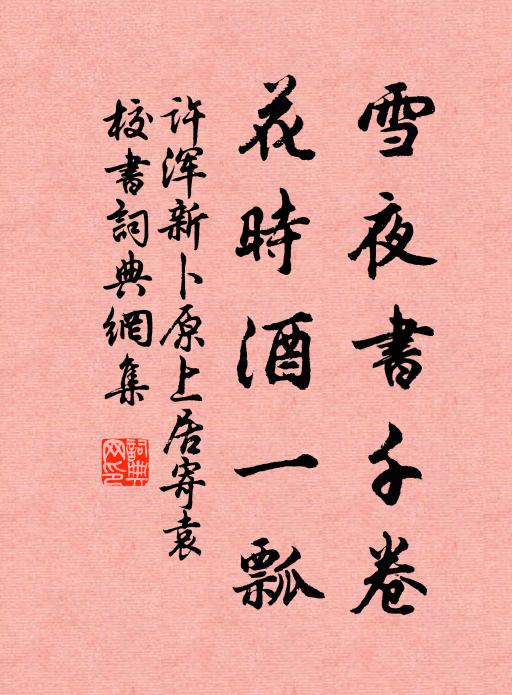 雪夜書千卷
花時酒一瓢
许浑新卜原上居寄袁
校書詞典網集
詞典
网印